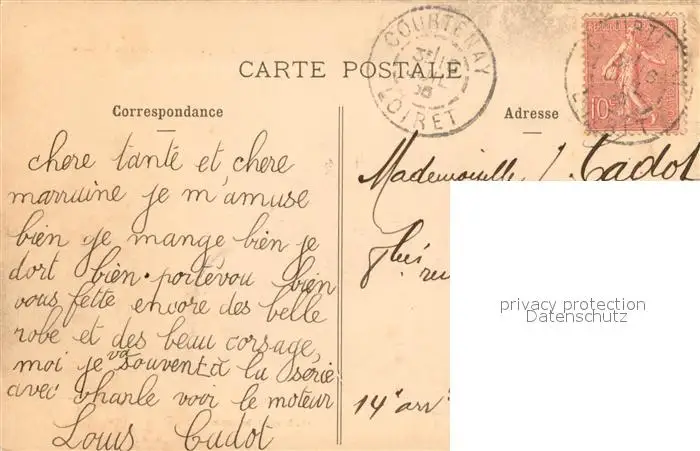 COURTENAY
LOIRET
CARTE POSTALE
10c
Correspondance
Adresse
chere tante et chere
marruine je m'amuse
bien je mange bien je
dort bien. portévou bien
vous fette encore des belle
robe et des beau corsage,
moi je va souvent à la serie
avec charle voir le moteur
Louis Cadot
Mademoiselle J Cadot
rue
14e arr
privacy protection
Datenschutz